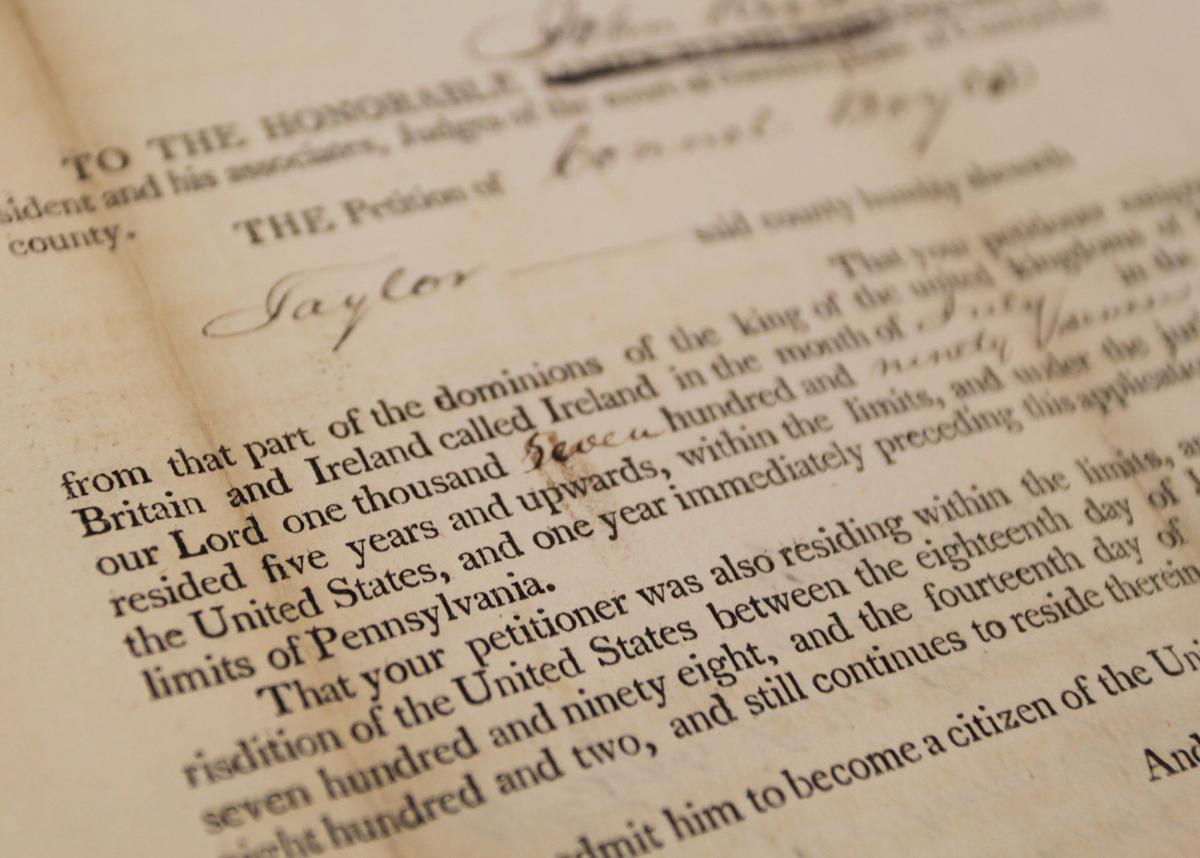 John
TO THE HONORABLE
sident and his associates, Judges of the court of Common pleas of
county.
THE Petition of Connel
Taylor said county humbly sheweth
That your petitioner
from that part of the dominions of the king of the united kingdoms of
Britain and Ireland called Ireland in the month of July in the
our Lord one thousand seven hundred and ninety
resided five years and upwards, within the limits, and under the
the United States, and one year immediately preceding this application
limits of Pennsylvania.
That your petitioner was also residing within the limits,
risdition of the United States between the eighteenth day of
seven hundred and ninety eight, and the fourteenth day of
ight hundred and two, and still continues to reside therein
admit him to become a citizen of the Un
And